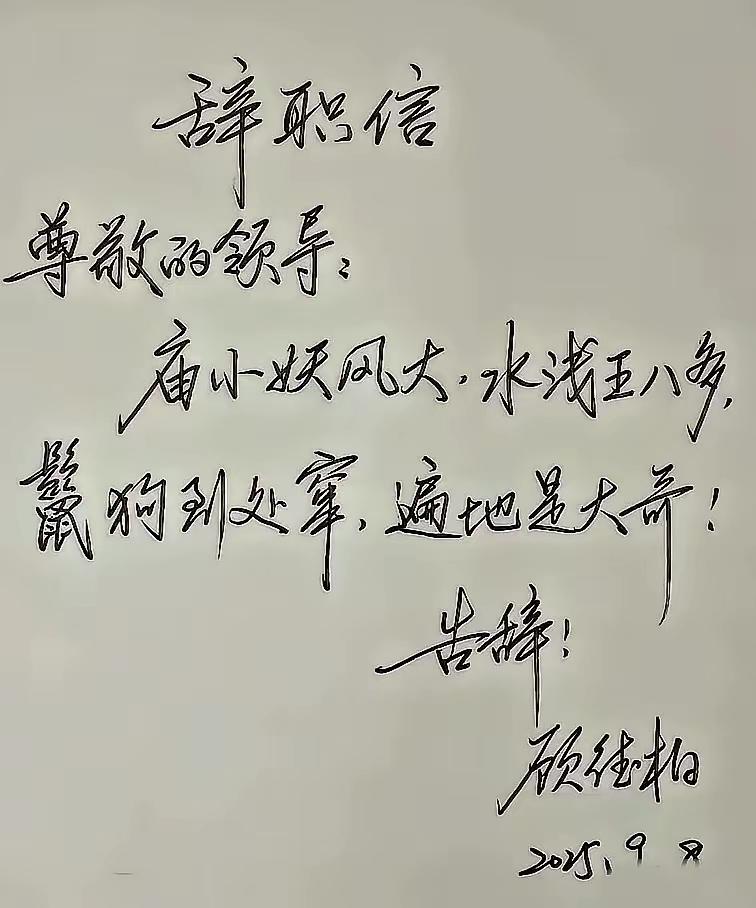 辞职信
尊敬的领导：
庙小妖风大，水浅王八多，
鬣狗到处窜，遍地是大哥！
告辞！
顾德柏
2025.9.8